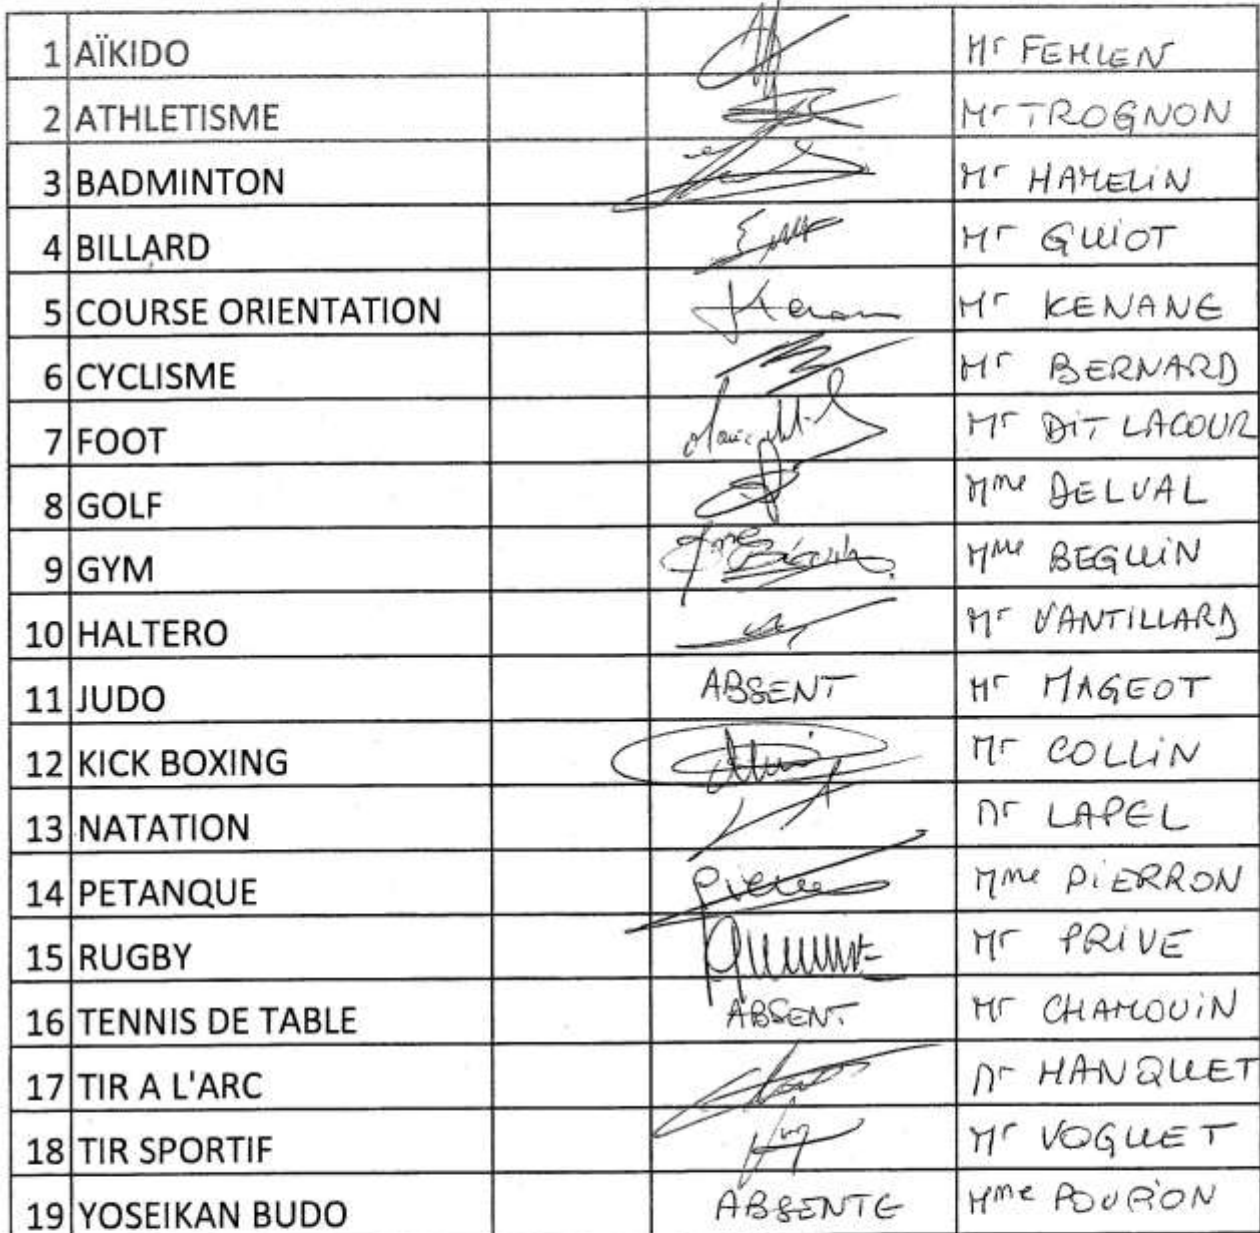 1 AÏKIDO Mr FEHLEN
2 ATHLETISME Mr TROGNON
3 BADMINTON Mr HAMELIN
4 BILLARD Mr GUIOT
5 COURSE ORIENTATION Mr KENANE
6 CYCLISME Mr BERNARD
7 FOOT Mr DIT LACOUR
8 GOLF Mme DELVAL
9 GYM Mme BEGUIN
10 HALTERO Mr VANTILLARD
11 JUDO ABSENT Mr MAGEOT
12 KICK BOXING Mr COLLIN
13 NATATION Mr LAPEL
14 PETANQUE Mme PIERRON
15 RUGBY Mr PRIVE
16 TENNIS DE TABLE ABSENT Mr CHAMOUIN
17 TIR A L'ARC Mr HANQUET
18 TIR SPORTIF Mr VOGUET
19 YOSEIKAN BUDO ABSENTE Mme POURION